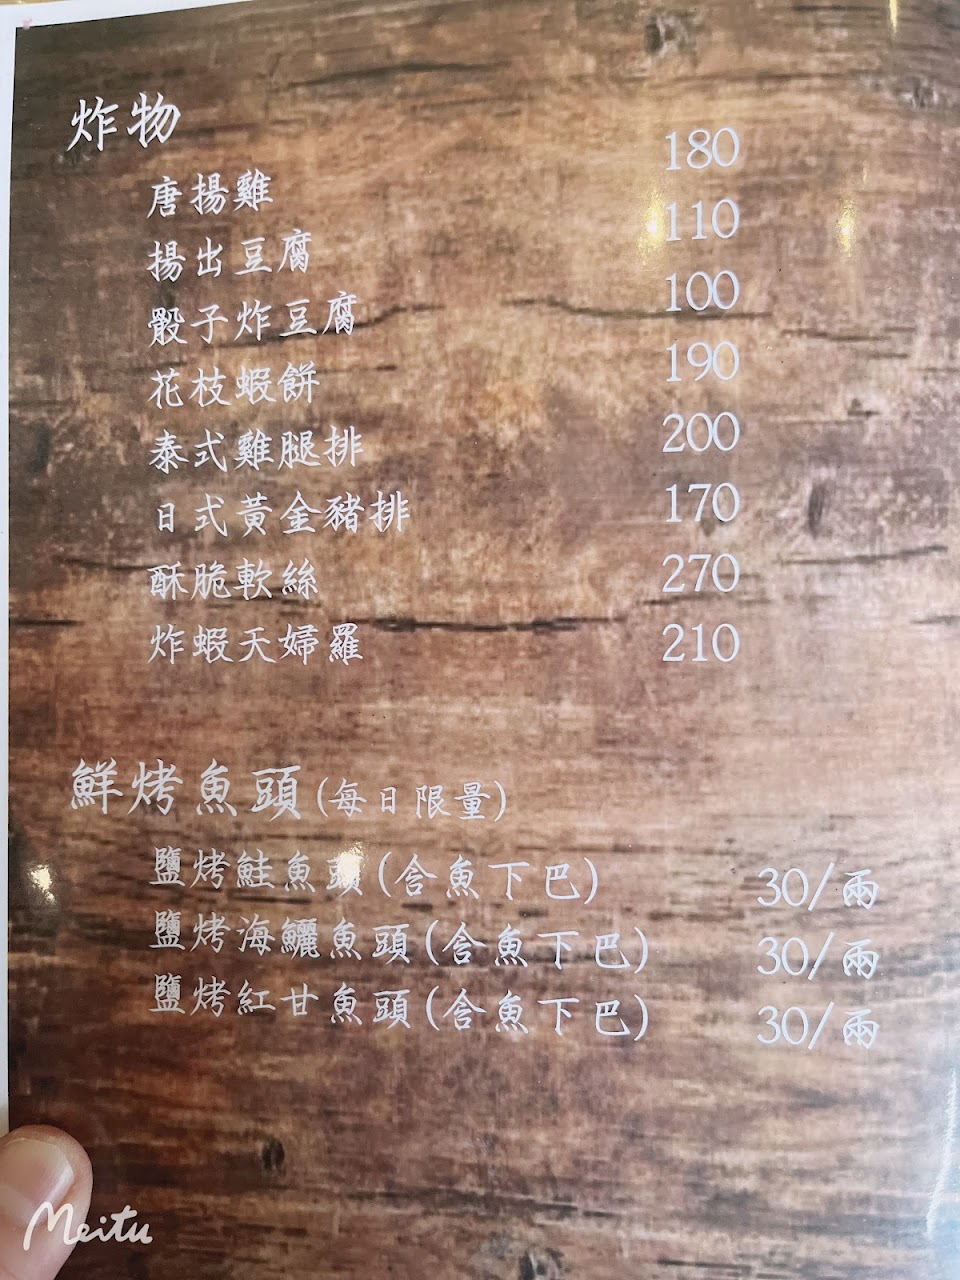 炸物
唐揚雞 180
揚出豆腐 110
骰子炸豆腐 100
花枝蝦餅 190
泰式雞腿排 200
日式黃金豬排 170
酥脆軟絲 270
炸蝦天婦羅 210
鮮烤魚頭(每日限量)
鹽烤鮭魚頭(含魚下巴) 30/兩
鹽烤海鱺魚頭(含魚下巴) 30/兩
鹽烤紅甘魚頭(含魚下巴) 30/兩
Meitu